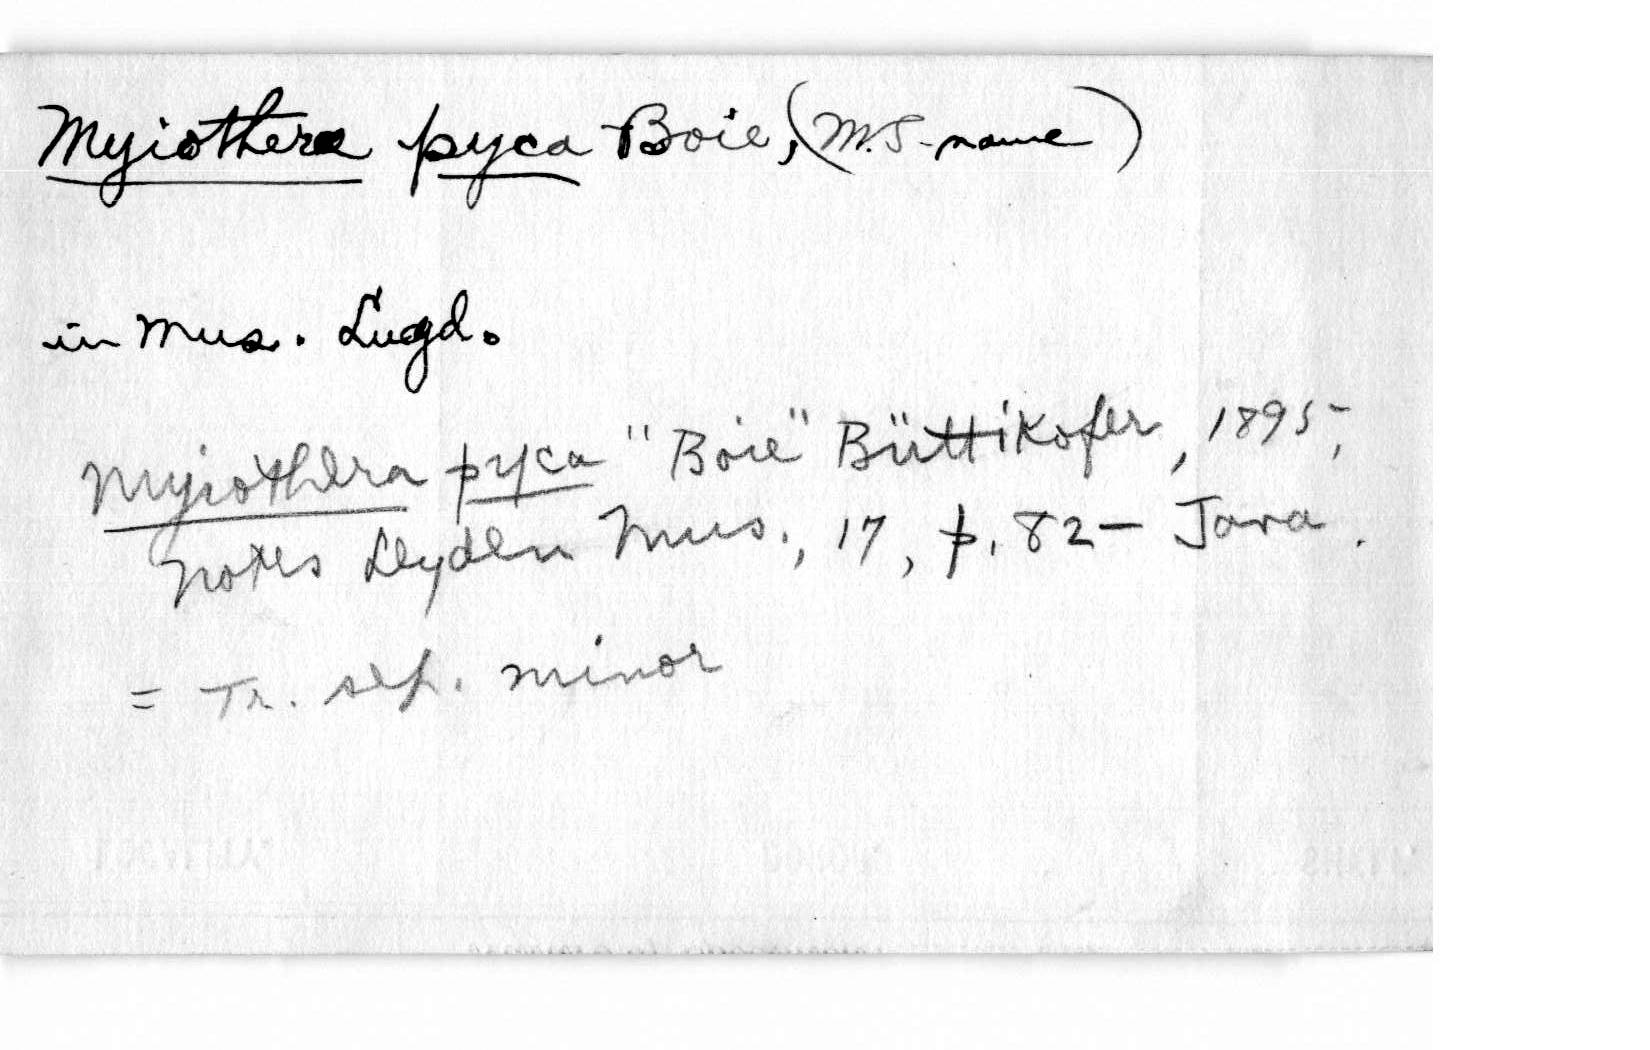 Myiothera pyca Boie, (M.S-name)
in Mus. Lugd.
Myiothera pyca "Boie" Büttikofer, 1895,
Notes Leyden Mus., 17, p. 82 - Java.
= Tr. sep. minor